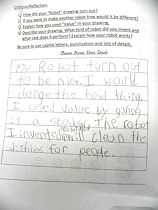 Critique/Reflection:
1) How did your "Robot" drawing turn out?
2) If you want to make another robot how would it be different?
3) Explain how you used "Value" in your drawing.
4) Describe your drawing. What kind of robot did you invent and what task does it perform? Explain how your robot works?
Be sure to use capital letters, punctuation and lots of details.
My Robot turn out
to be nice. I would
change the body thing.
I used value by going
The robot
I invented will clean the
dishies for people.